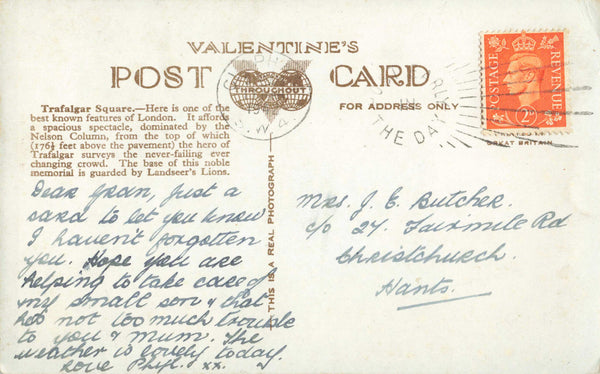 VALENTINE'S
POST CARD
THROUGHOUT
FOR ADDRESS ONLY
S.W.4.
THE DAY
POSTAGE
REVENUE
2D
GREAT BRITAIN
Trafalgar Square.—Here is one of the
best known features of London. It affords
a spacious spectacle, dominated by the
Nelson Column, from the top of which
(176½ feet above the pavement) the hero of
Trafalgar surveys the never-failing ever
changing crowd. The base of this noble
memorial is guarded by Landseer's Lions.
THIS IS A REAL PHOTOGRAPH
Dear Gran, Just a
card to let you know
I haven't forgotten
you. Hope you are
helping to take care of
my small son & that
he's not too much trouble
to you & Mum. The
weather is lovely today.
Love Phyl. xx.
Mrs. J. E. Butcher.
c/o 27. Fairmile Rd
Christchurch.
Hants.